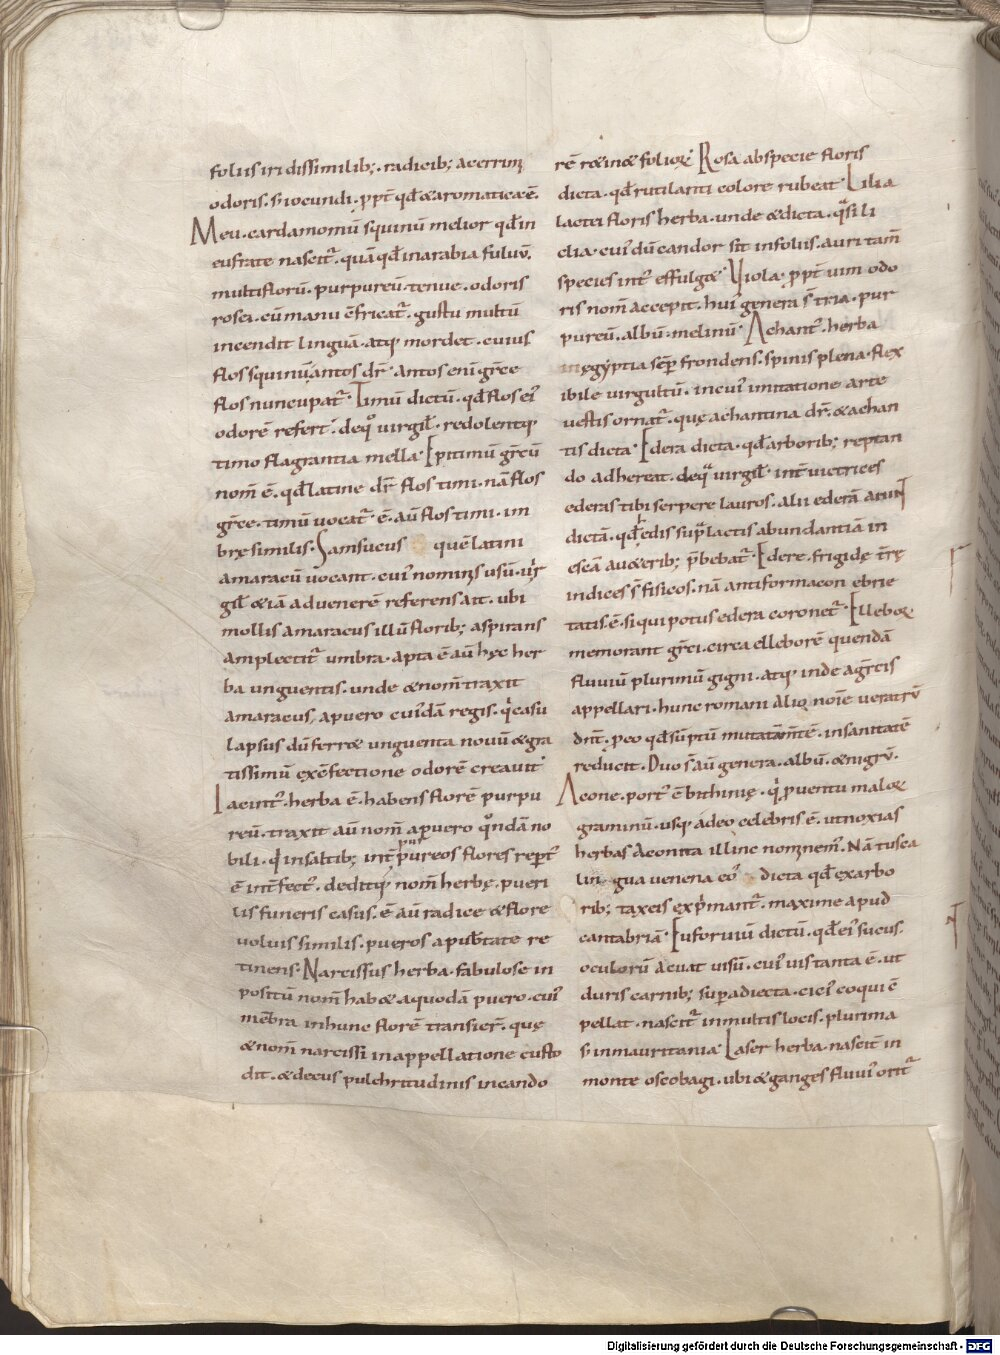 foliis iri dissimilib; radicib; acerrim
odoris · s; iocundi · ꝓpt̄ qđ & aromatica ē ·
Meu · cardamomū squinū melior qđ in
eufrate nascit᷑ · quā qđ in arabia fuluū ·
multiflorū · purpureū · tenue · odoris
rosei · cū manu c̄fricat᷑ · gustu multū
incendit linguā · atq; mordet · cuius
flos squinūantos dr̄ · Antos eni gr̄ce
flos nuncupat᷑ · Timū dictū · qđ flos ei᷒
odorē refert · de quo virgil̄ · redolentq;
timo flagrantia mella · Epitimū gr̄cū
nom̄ ē · qđ latine dr̄ flos timi · nā flos
gr̄ce · timū uocat᷑ · ē · aū flos timi · im
bręsimilis · Samsucus quē latini
amaracū uocant · cui᷒ nominis usū · uir
gil̄ & iā ad uenerē referens ait · ubi
mollis amaracus illū florib; aspirans
amplectit᷑ umbra · apta ē aū hęc her
ba unguentis · unde & nom̄ traxit
amaracus, a puero cui᷒dā regis · qͥ casu
lapsus dū ferr& unguenta nouū & gra
tissimū ex c̄fectione odorē creauit ·
Iacint᷒ · herba ē · habens florē purpu
reū · traxit aū nom̄ a puero qͦndā no
bili · qͥ in saltib; int̄ purpureos flores repert᷒
ē int̄fect᷒ · deditq; nom̄ herbę · pueri
lis funeris casus · ē aū radice & flore
uoluis similis · pueros a pubertate re
tinens · Narcissus herba · fabulose in
positū nom̄ hab& a quodā puero · cui᷒
mēbra in hunc florē transier̄ · quę
& nom̄ narcissi in appellatione custo
dit · & decus pulchritudinis in cando
rē r&in& folior̄ · Rosa ab specie floris
dicta · qđ rutilanti colore rubeat · Lilia
lactei floris herba · unde & dicta · q̄si li
clia · cui᷒ dū candor sit in foliis · auri tam̄
species int᷒ effulg& · Viola · ꝓpt̄ uim odo
ris nom̄ accepit · hui᷒ genera s̄ tria · pur
pureū · albū · melinū · Achant᷒ · herba
in ęgyptia sēp frondens · spinis plena · flex
ibile virgultū · in cui᷒ imitatione arte
uestis ornat᷑ · quę achantina dr̄ · & achan
tis dicta · Edera dicta · qđ arborib; reptan
do adhereat · de qua virgil̄ · int̄ victrices
ederas tibi serpere lauros · alii ederā aiunt
dictā · qđ hędis sup̄ lactis abundantiā in
escā a u&erib; p̄bebat᷑ · Edere · frigidę tr̄rę
indices s̄ fisicos · nā antiformacon ebrie
tatis ē · si qui potus edera coronet᷑ · Ellebor̄
memorant gr̄ci · circa elleborē quendā
fluuiū plurimū gigni · atq; inde a gr̄cis
appellari · hunc romani alio noīe ueratrū
dn̄t · ꝓ eo qđ sūptū mutatā mn̄tē · in sanitatē
reducit · Duo s̄ aū genera · albū · & nigrū ·
Acone · port᷒ ē bithinię · qͥ ꝓuentu malor̄
graminū · usq; adeo celebris ē · ut noxias
herbas Aconita illinc nominem᷒ · Nā tusca
lin gua uenena eo᷒ dicta qđ ex arbo
rib; taxeis exp̄mant᷑ · maxime apud
cantabriā · Euforuiū dictū · qđ ei᷒ sucus ·
oculorū acuat uisū · cui᷒ uis tanta ē · ut
duris carnib; sup̄adiecta · cici᷒ coqui c̄
pellat · nascit᷑ in multis locis · plurima
s; in mauritania · Laser herba nascit᷑ in
monte oscobagi · ubi & ganges fluui᷒ orit᷑
Digitalisierung gefördert durch die Deutsche Forschungsgemeinschaft - DFG